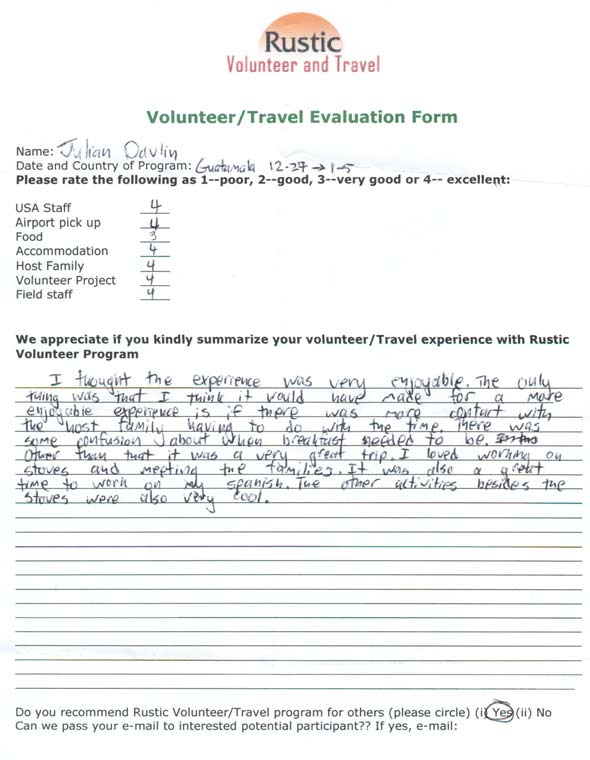 Rustic
Volunteer and Travel
Volunteer/Travel Evaluation Form
Name: Julian Davlin
Date and Country of Program: Guatamala 12-27 → 1-5
Please rate the following as 1--poor, 2--good, 3--very good or 4-- excellent:
USA Staff 4
Airport pick up 4
Food 3
Accommodation 4
Host Family 4
Volunteer Project 4
Field staff 4
We appreciate if you kindly summarize your volunteer/Travel experience with Rustic
Volunteer Program
I thought the experience was very enjoyable. The only
thing was that I think it would have made for a more
enjoyable experience is if there was more contact with
the host family having to do with the time. There was
some confusion about when breakfast needed to be.
Other than that it was a very great trip. I loved working on
stoves and meeting the families. It was also a great
time to work on my spanish. The other activities besides the
stoves were also very cool.
Do you recommend Rustic Volunteer/Travel program for others (please circle) (i) Yes (ii) No
Can we pass your e-mail to interested potential participant?? If yes, e-mail: